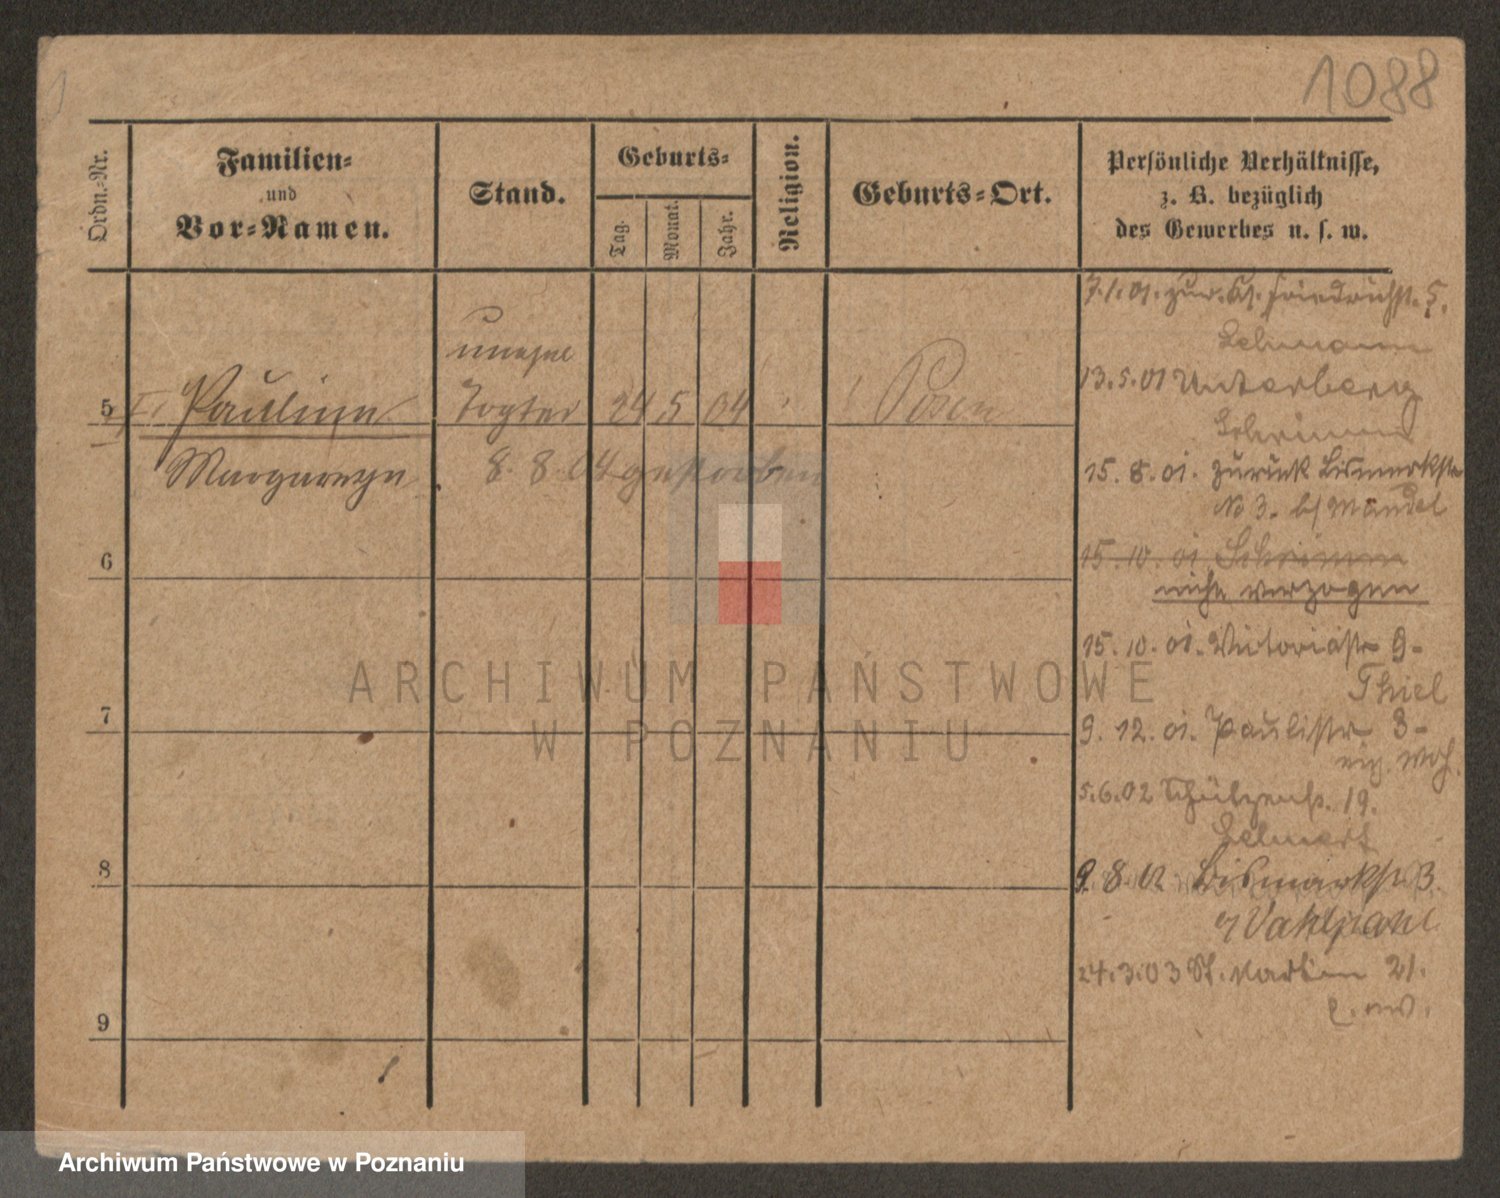 1088
Ordn.-Nr.
Familien-
und
Vor-Namen.
Stand.
Geburts-
Tag.
Monat.
Jahr.
Religion.
Geburts-Ort.
Persönliche Verhältnisse,
z. B. bezüglich
des Gewerbes u. s. w.
7.1.01. zur. Friedrichst. 5.
Lehmann
13.5.01 Unterberg
Schrimm
15.8.01. zurück Bismarckstr
No 3. b/ Mandel
15.10.01 Schrimm
nicht verzogen
15.10.01. Victoriastr 9-
Thiel
9.12.01. Paulistr 3-
eig. Woh.
5.6.02 Schützenst. 19.
9.8.02 Bismarkstr 3.
24.3.03 St. Martin 21.
unehel
5 Paulina Tochter 24 5 04 Posen
8.8.04 gestorben
6
7
8
9
ARCHIWUM PAŃSTWOWE
W POZNANIU
Archiwum Państwowe w Poznaniu